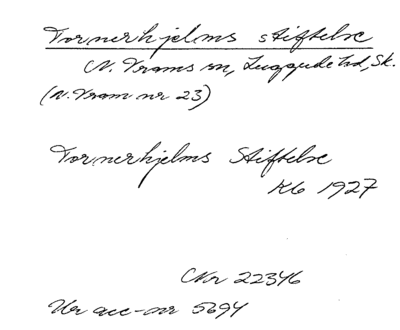 Tornerhjelms stiftelse
N. Vrams sn, Luggude hd, Sk.
(N. Vram nr 23)
Tornerhjelms Stiftelse
Kb 1927
CNr 22346
Ur acc-nr 5694